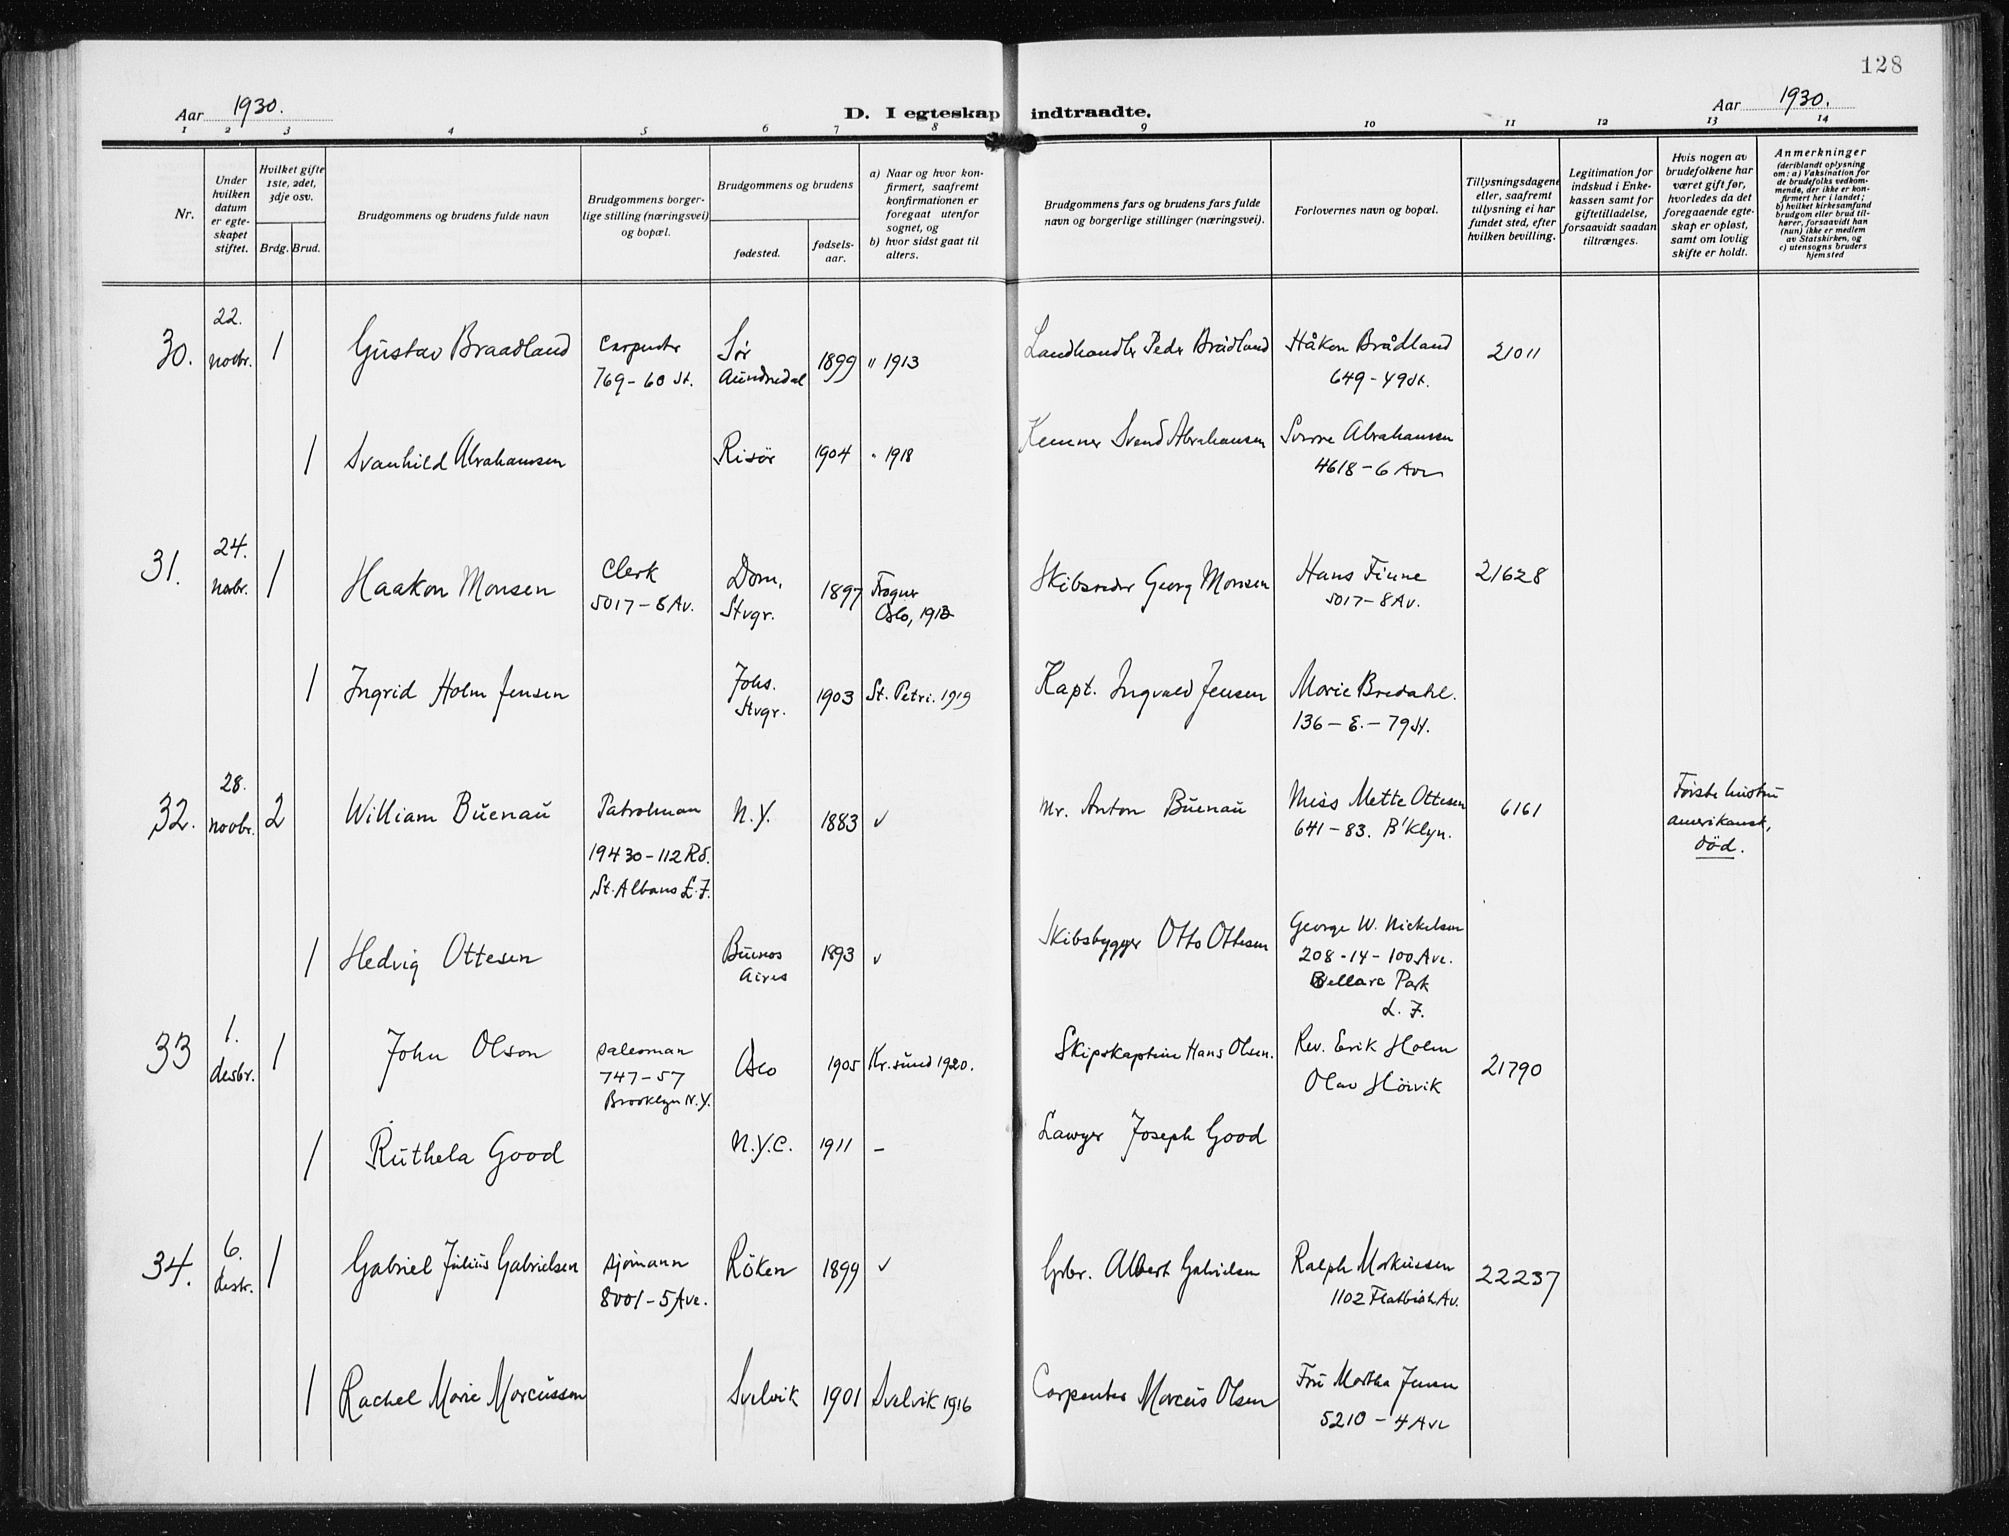 128
Aar 1930.
D. I egteskap indtraadte.
Aar 1930.
1 2 3 4 5 6 7 8 9 10 11 12 13 14
Nr.
Under
hvilken
datum
er egte-
skapet
stiftet.
Hvilket gifte
1ste, 2det,
3dje osv.
Brdg. Brud.
Brudgommens og brudens fulde navn
Brudgommens borger-
lige stilling (næringsvei)
og bopæl.
Brudgommens og brudens
fødested.
fødsels-
aar.
a) Naar og hvor kon-
firmert, saafremt
konfirmationen er
foregaat utenfor
sognet, og
b) hvor sidst gaat til
alters.
Brudgommens fars og brudens fars fulde
navn og borgerlige stillinger (næringsvei).
Forlovernes navn og bopæl.
Tillysningsdagene
eller, saafremt
tillysning ei har
fundet sted, efter
hvilken bevilling.
Legitimation for
indskud i Enke-
kassen samt for
giftetilladelse,
forsaavidt saadan
tiltrænges.
Hvis nogen av
brudefolkene har
været gift før,
hvorledes da det
foregaaende egte-
skap er opløst,
samt om lovlig
skifte er holdt.
Anmerkninger
(deriblandt oplysning
om: a) Vaksination for
de brudefolks vedkom-
mende, der ikke er kon-
firmert her i landet;
b) hvilket kirkesamfund
brudgom eller brud til-
hører, forsaavidt han
(hun) ikke er medlem
av Statskirken, og
c) utensogns bruders
hjemsted
30.
22.
novbr.
1
Gustav Braadland
Carpenter
769-60 St.
Sør
Aundnedal
1899
" 1913
Landhandler Peder Brådland
Håkon Brådland
649-49 St.
21011
1
Svanhild Abrahamsen
Risør
1904
" 1918
Kemner Svend Abrahamsen
Sverre Abrahamsen
4618-6 Ave
31.
24.
novbr.
1
Haakon Monsen
Clerk
5017-8 Av.
Dom.
Stvgr.
1897
Frogner
Oslo, 1912
Skibsreder Georg Monsen
Hans Finne
5017-8 Av.
21628
1
Ingrid Holm Jensen
Johs.
Stvgr.
1903
St. Petri. 1919
Kapt. Ingvald Jensen
Marie Bredahl.
136-E.-79 St.
32.
28.
novbr.
2
William Buenau
Patrolman
19430-112 Rd.
St. Albans L.I.
N.Y.
1883
✓
Mr. Anton Buenau
Miss Mette Ottesen
641-83. B'klyn.
6161
Første hustru
amerikansk,
død.
1
Hedvig Ottesen
Buenos
Aires
1893
✓
Skibsbygger Otto Ottesen
George W. Nickelson
208-14-100 Ave.
Bellare Park
L. I.
33
1.
desbr.
1
John Olson
salesman
747-57
Brooklyn N.Y.
Oslo
1905
Kr.sund 1920.
Skipskaptein Hans Olsen.
Rev. Erik Holm
Olav Höivik
21790
1
Ruthela Good
N.Y.C.
1911
-
Lawyer Joseph Good
34.
6.
desbr.
1
Gabriel Julius Gabrielsen
sjömann
8001-5 Ave.
Röken
1899
✓
Grbr. Albert Gabrielsen
Ralph Markussen
1102 Flatbush Av.
22237
1
Rachel Marie Marcussen
Svelvik
1901
Svelvik 1916
Carpenter Marcus Olsen
Fru Martha Jensen
5210-4 Ave